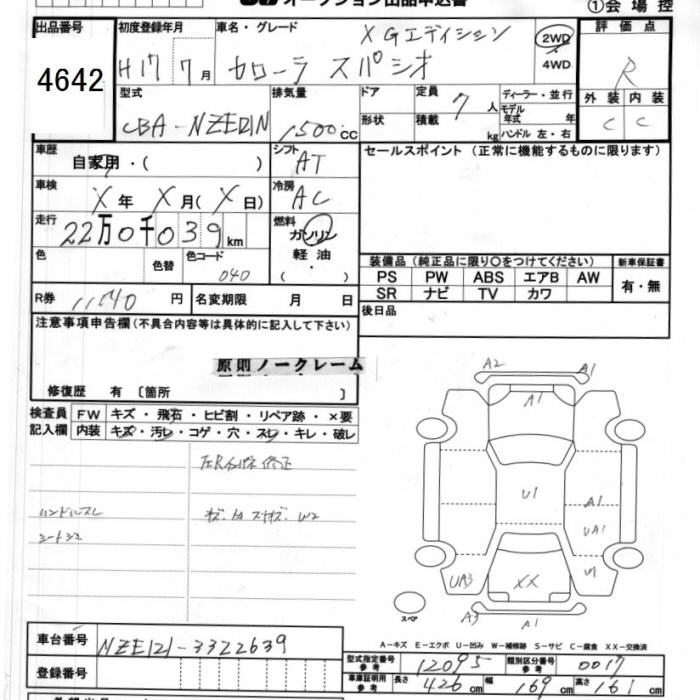 オークション出品申込書 ①会場控
出品番号 初度登録年月 車名・グレード XGエディション 2WD 評価点
4642 H17 7月 カローラ スパシオ 4WD R
型式 排気量 ドア 定員 7人 ディーラー・並行 外装 内装
CBA-NZE121N 1500cc 形状 積載 kg モデル年式 年 C C
ハンドル 左・右
車歴 自家用・( ) シフト AT セールスポイント (正常に機能するものに限ります)
車検 X年 X月(X日) 冷房 AC
走行 22万0千039km 燃料 ガソリン
軽油
( ・ )
色 色替 色コード 040 装備品 (純正品に限り○をつけてください) 新車保証書
PS PW ABS エアB AW 有・無
SR ナビ TV カワ
R券 11140円 名変期限 月 日 後日品
注意事項申告欄 (不具合内容等は具体的に記入して下さい)
原則ノークレーム
修復歴 有 〔箇所 〕
検査員 FW キズ・飛石・ヒビ割・リペア跡・×要
記入欄 内装 キズ・汚レ・コゲ・穴・スレ・キレ・破レ
ハンドルスレ
A2 A1
A1
U1
A1
UA1
U1
UA3
XX
A3 A1
スペア
A-キズ E-エクボ U-凹み W-補修跡 S-サビ C-腐食 XX-交換済
車台番号 NZE121-3322639 型式指定番号 参考 12095 類別区分番号 参考 0017
登録番号 車庫証明用 参考 長さ 426cm 幅 169cm 高さ 161cm